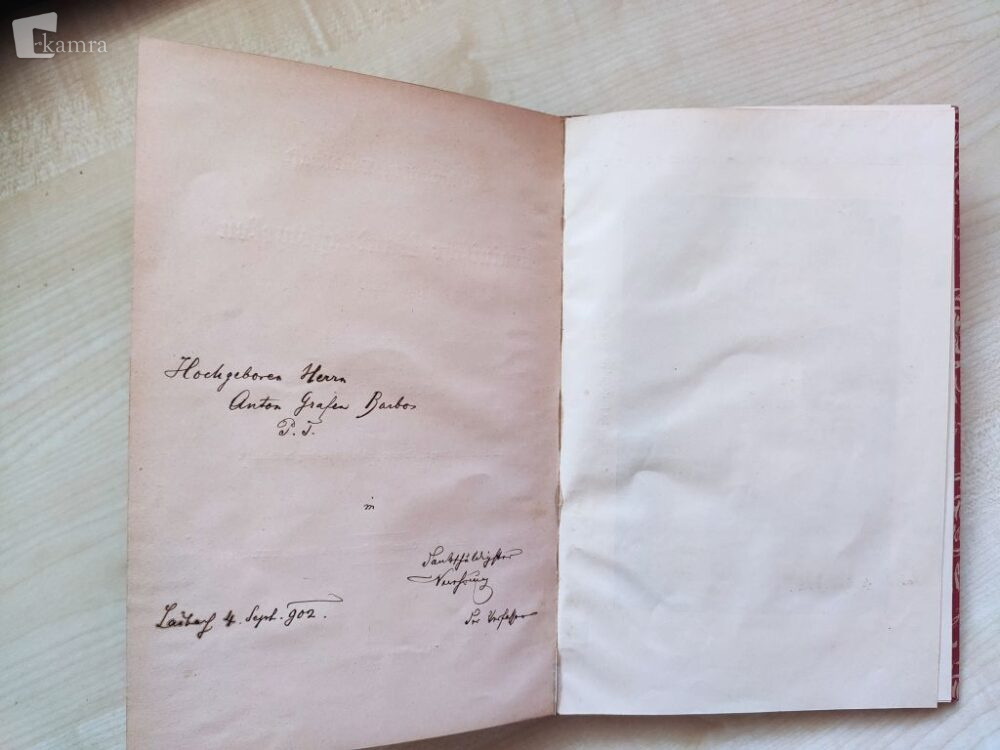 kamra
Hochgeboren Herrn
Anton Grafen Barbos
P. T.
in
dankschuldigster
Verehrung
Laibach 4. Sept. 902.
der Verfasser